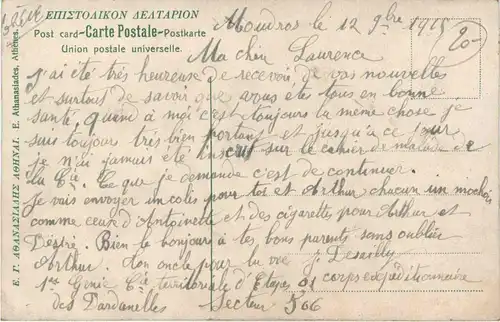 ΕΠΙΣΤΟΛΙΚΟΝ ΔΕΛΤΑΡΙΟΝ
Post card - Carte Postale - Postkarte
Union postale universelle.
Ε. Γ. ΑΘΑΝΑΣΙΑΔΗΣ ΑΘΗΝΑΙ. E. Athanasiades, Athènes.
20-
Moudros le 12 9bre 1915
Ma chère Laurence
J'ai été très heureuse de recevoir de vos nouvelles
et surtout de savoir que vous été tous en bonne
santé, quand à moi c'est toujours la même chose je
suis toujours très bien portant et jusqu'à ce jour
je n'ai jamais été inscrit sur le cahier de malade de
la Cie. Ce que je demande c'est de continuer.
Je vais envoyer un colis pour toi et Arthur chacun un mochoir
comme ceux d'Antoinette et des cigarettes pour Arthur et
Désiré. Bien le bonjour à tes bons parents sans oublier
Arthur. Ton oncle pour la vie J. Desailly
1er Génie Cie territoriale d'Etapes 01 corps expéditionnaire
des Dardanelles Secteur 506